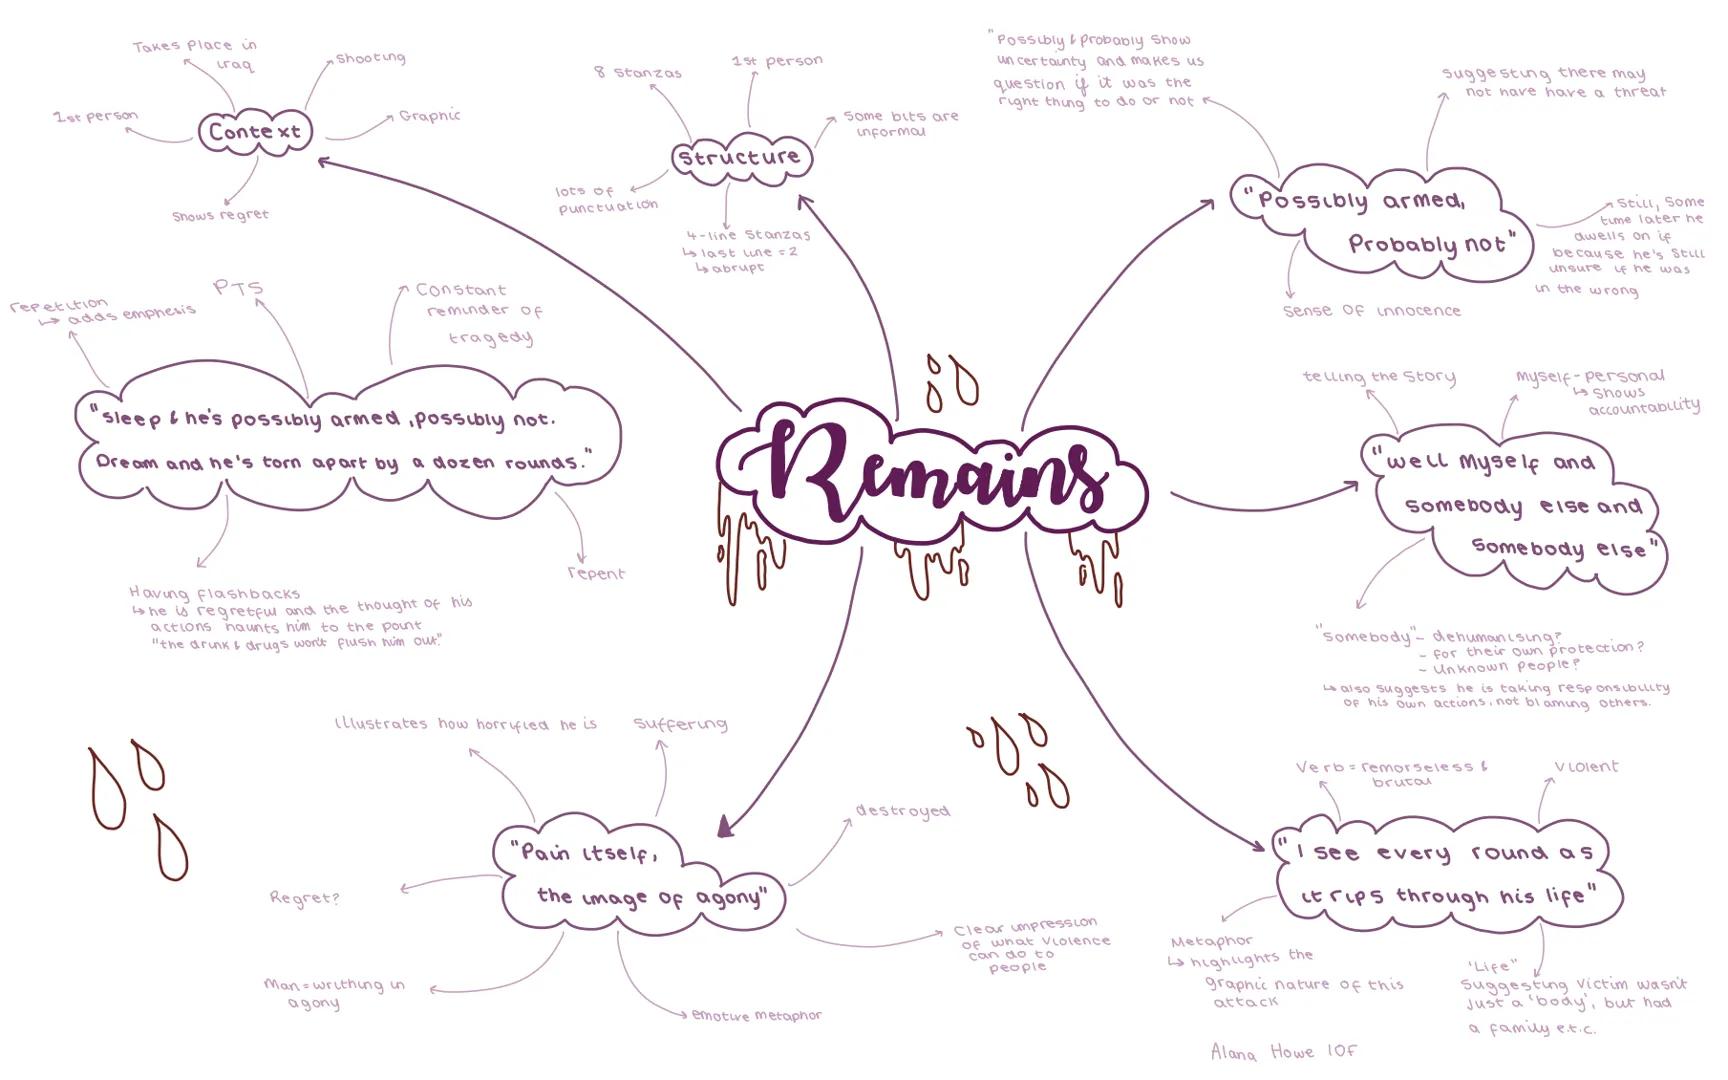 Remains
Context
Takes place in
iraq
Shooting
1st person
Graphic
Shows regret
Structure
8 stanzas
1st person
Some bits are
informal
lots of
punctuation
4-line stanzas
↳ last line = 2
↳ abrupt
"Possibly armed,
Probably not"
"Possibly & probably show
uncertainty and makes us
question if it was the
right thing to do or not
suggesting there may
not have have a threat
Still, some
time later he
dwells on if
because he's still
unsure if he was
in the wrong
Sense of innocence
"sleep & he's possibly armed, possibly not.
Dream and he's torn apart by a dozen rounds."
repetition
↳ adds emphesis
PTS
Constant
reminder of
tragedy
Having flashbacks
↳ he is regretful and the thought of his
actions haunts him to the point
"the drink & drugs won't flush him out"
repent
"well myself and
somebody else and
somebody else"
telling the story
Myself - personal
↳ shows
accountability
"somebody" - dehumanising?
- for their own protection?
- unknown people?
↳ also suggests he is taking responsibility
of his own actions, not blaming others.
"Pain itself,
the image of agony"
illustrates how horrified he is
Suffering
destroyed
Regret?
Clear impression
of what violence
can do to
people
Man = writhing in
agony
emotive metaphor
"I see every round as
it rips through his life"
Verb = remorseless &
brutal
Violent
Metaphor
↳ highlights the
graphic nature of this
attack
'Life"
Suggesting victim wasn't
just a 'body', but had
a family e.t.c.
Alana Howe 10F